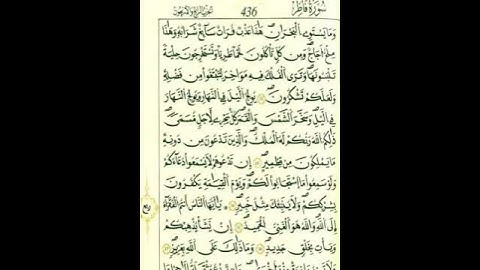 سُورَةُ فَاطِرٍ 436
وَمَا يَسْتَوِى ٱلْبَحْرَانِ هَٰذَا عَذْبٌ فُرَاتٌ سَآئِغٌ شَرَابُهُۥ وَهَٰذَا
مِلْحٌ أُجَاجٌ وَمِن كُلٍّ تَأْكُلُونَ لَحْمًا طَرِيًّا وَتَسْتَخْرِجُونَ حِلْيَةً
تَلْبَسُونَهَا وَتَرَى ٱلْفُلْكَ فِيهِ مَوَاخِرَ لِتَبْتَغُوا۟ مِن فَضْلِهِۦ
وَلَعَلَّكُمْ تَشْكُرُونَ يُولِجُ ٱلَّيْلَ فِى ٱلنَّهَارِ وَيُولِجُ ٱلنَّهَارَ
فِى ٱلَّيْلِ وَسَخَّرَ ٱلشَّمْسَ وَٱلْقَمَرَ كُلٌّ يَجْرِى لِأَجَلٍ مُّسَمًّى
ذَٰلِكُمُ ٱللَّهُ رَبُّكُمْ لَهُ ٱلْمُلْكُ وَٱلَّذِينَ تَدْعُونَ مِن دُونِهِۦ
مَا يَمْلِكُونَ مِن قِطْمِيرٍ إِن تَدْعُوهُمْ لَا يَسْمَعُوا۟ دُعَآءَكُمْ
وَلَوْ سَمِعُوا۟ مَا ٱسْتَجَابُوا۟ لَكُمْ وَيَوْمَ ٱلْقِيَٰمَةِ يَكْفُرُونَ
بِشِرْكِكُمْ وَلَا يُنَبِّئُكَ مِثْلُ خَبِيرٍ يَٰٓأَيُّهَا ٱلنَّاسُ أَنتُمُ ٱلْفُقَرَآءُ
إِلَى ٱللَّهِ وَٱللَّهُ هُوَ ٱلْغَنِىُّ ٱلْحَمِيدُ إِن يَشَأْ يُذْهِبْكُمْ
وَيَأْتِ بِخَلْقٍ جَدِيدٍ وَمَا ذَٰلِكَ عَلَى ٱللَّهِ بِعَزِيزٍ